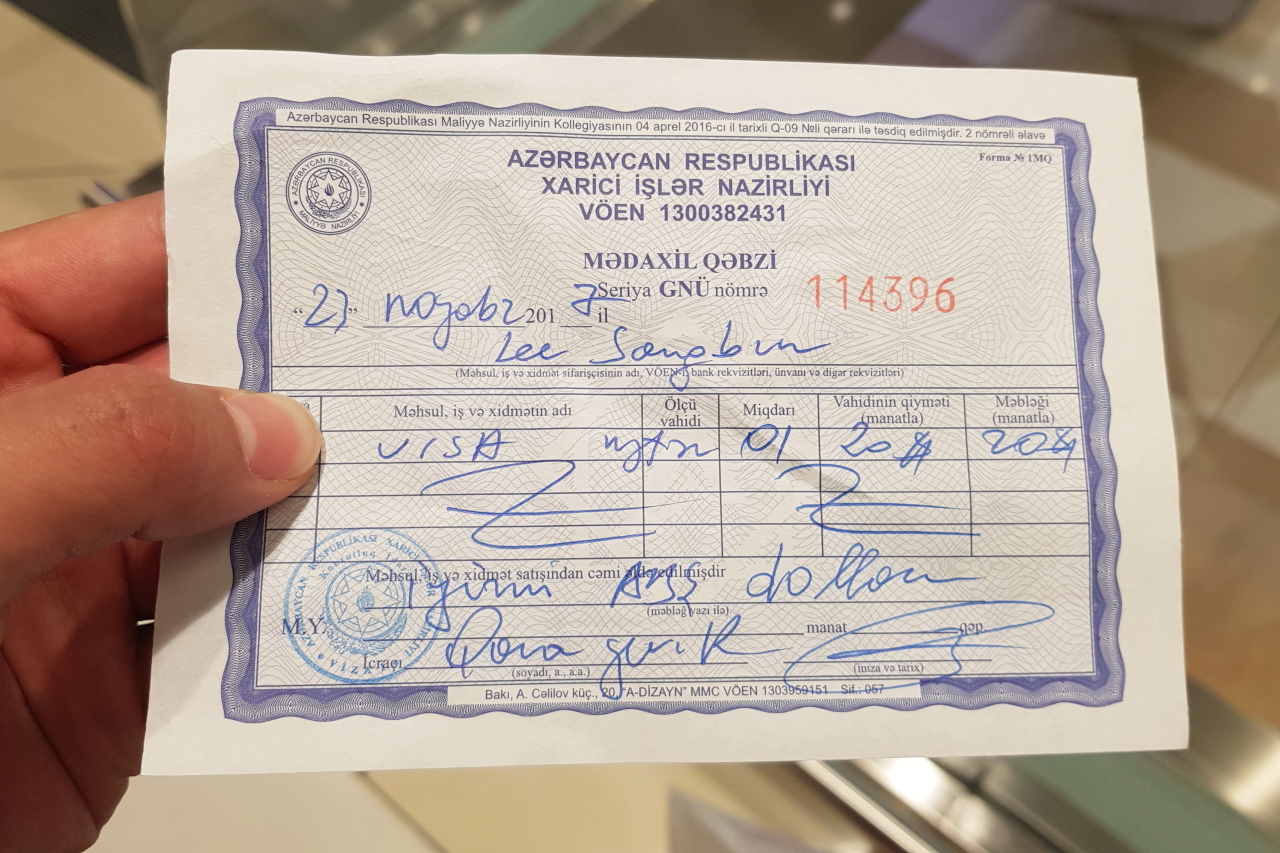 Azərbaycan Respublikası Maliyyə Nazirliyinin Kollegiyasının 04 aprel 2016-cı il tarixli Q-09 №li qərarı ilə təsdiq edilmişdir. 2 nömrəli əlavə
Forma № 1MQ
AZƏRBAYCAN RESPUBLİKASI
MALİYYƏ NAZİRLİYİ
AZƏRBAYCAN RESPUBLİKASI
XARİCİ İŞLƏR NAZİRLİYİ
VÖEN 1300382431
MƏDAXİL QƏBZİ
Seriya GNÜ nömrə 114396
“27” noyabr 2017 il
Lee Sangbum
(Məhsul, iş və xidmət sifarişçisinin adı, VÖEN-i, bank rekvizitləri, ünvanı və digər rekvizitləri)
Məhsul, iş və xidmətin adı Ölçü vahidi Miqdarı Vahidinin qiyməti (manatla) Məbləği (manatla)
VISA 01 20$ 20$
Məhsul, iş və xidmət satışından cəmi əldə edilmişdir
iyirmi ABŞ dolları
(məbləğ yazı ilə)
M.Y. manat qəp.
İcraçı
(soyadı, a., a.a.) (imza və tarix)
Bakı, A. Cəlilov küç., 20, “A-DİZAYN” MMC VÖEN 1303959151 Sif.: 057